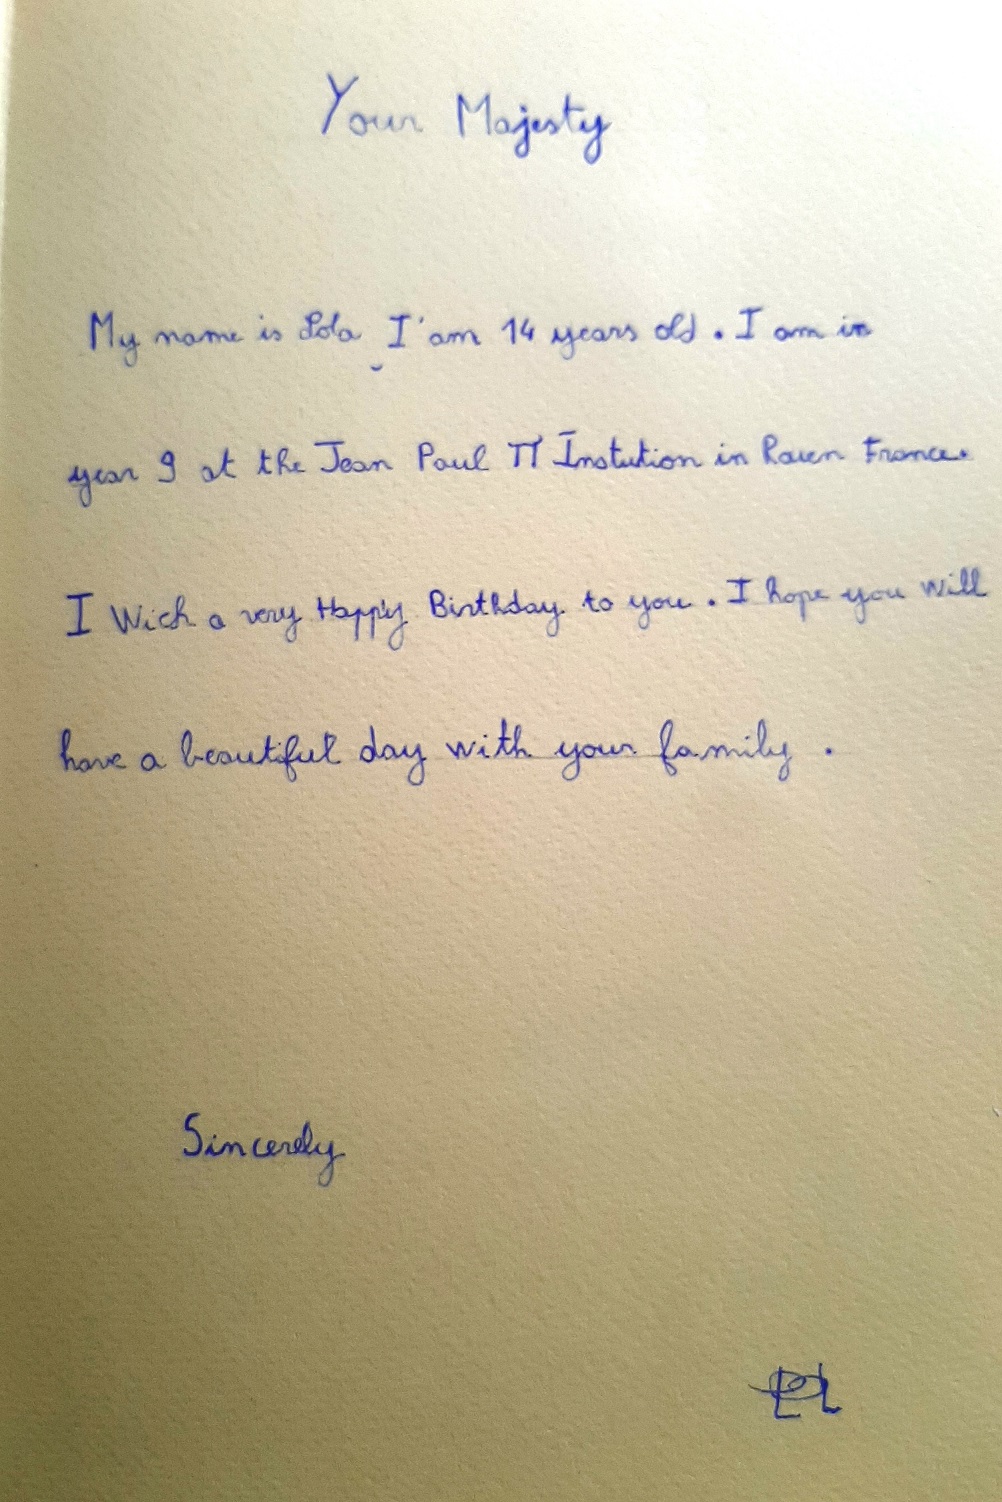 Your Majesty
My name is Lola I'am 14 years old. I am in
year 9 at the Jean Paul II Instution in Rouen France.
I Wich a very Happy Birthday to you. I hope you will
have a beautiful day with your family.
Sincerely